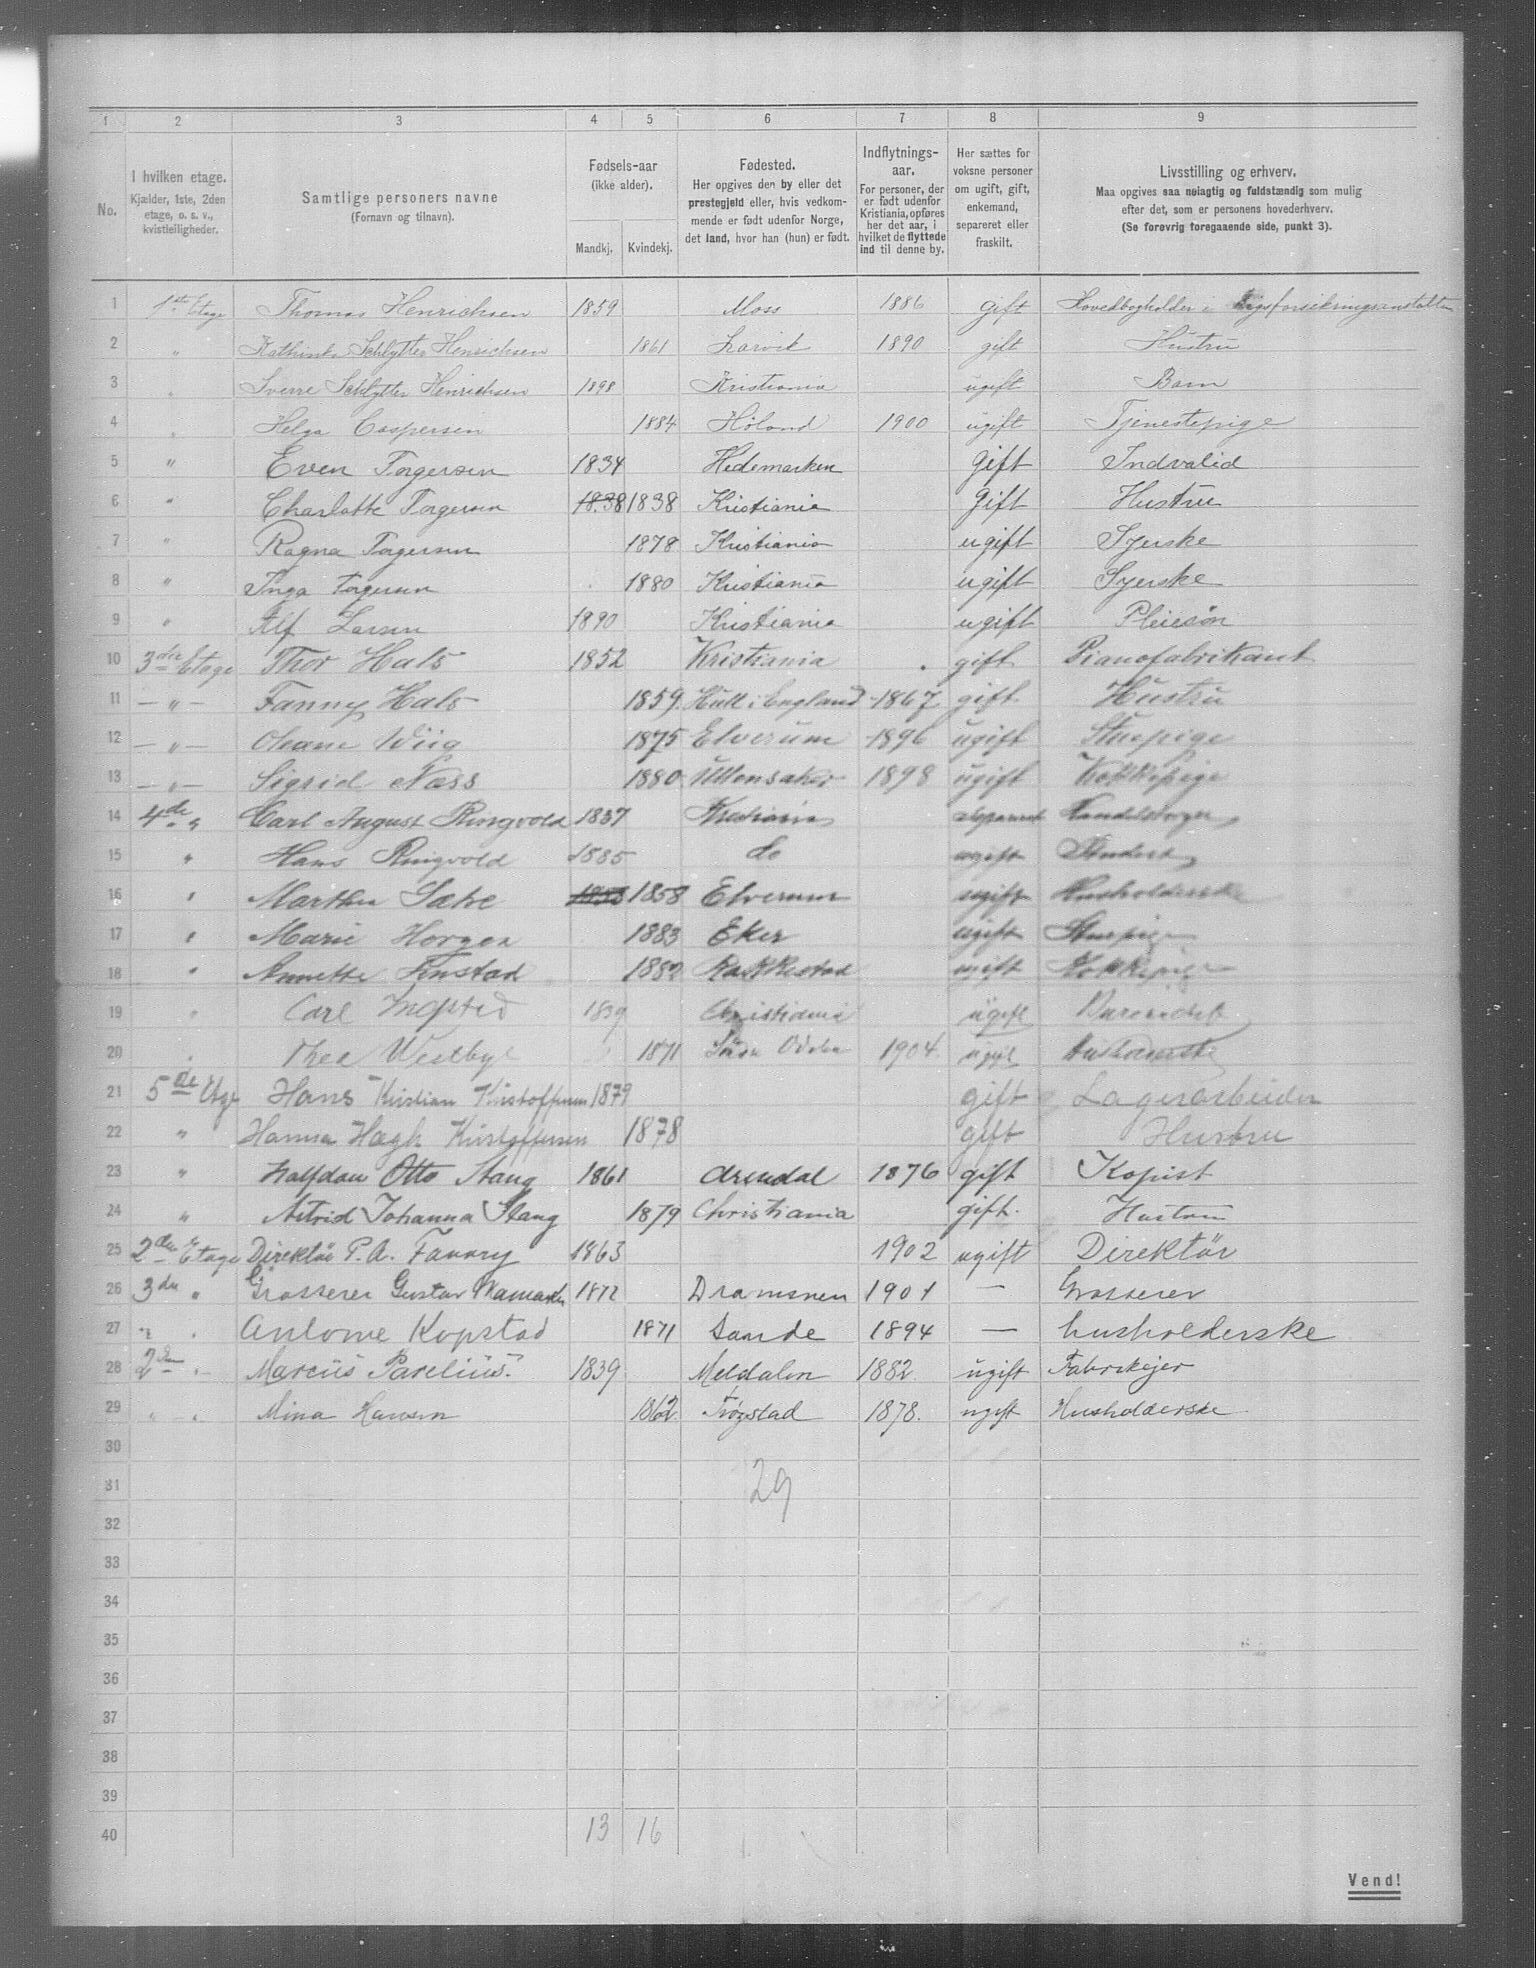 1 2 3 4 5 6 7 8 9
No.
I hvilken etage.
Kjælder, 1ste, 2den
etage, o. s. v.,
kvistleiligheder.
Samtlige personers navne
(Fornavn og tilnavn).
Fødsels-aar
(ikke alder).
Mandkj. Kvindekj.
Fødested.
Her opgives den by eller det
prestegjeld eller, hvis vedkom-
mende er født udenfor Norge,
det land, hvor han (hun) er født.
Indflytnings-
aar.
For personer, der
er født udenfor
Kristiania, opføres
her det aar, i
hvilket de flyttede
ind til denne by.
Her sættes for
voksne personer
om ugift, gift,
enkemand,
separeret eller
fraskilt.
Livsstilling og erhverv.
Maa opgives saa nøiagtig og fuldstændig som mulig
efter det, som er personens hovederhverv.
(Se forøvrig foregaaende side, punkt 3).
1 1ste Etage Thomas Henrichsen 1859 Moss 1886 Gift Hovedbogholder i Rigsforsikringsanstalten
2 " Kathinka Schlytter Henrichsen 1861 Larvik 1890 gift Hustru
3 " Sverre Schlytter Henrichsen 1898 Kristiania ugift Barn
4 " Helga Caspersen 1884 Høland 1900 ugift Tjenestepige
5 " Even Torgersen 1834 Hedemarken Gift Indvalid
6 " Charlotte Torgersen 1838 1838 Kristiania Gift Hustru
7 " Ragna Torgersen 1878 Kristiania ugift Syerske
8 " Inga Torgersen 1880 Kristiania ugift Syerske
9 " Alf Larsen 1890 Kristiania ugift Pleiesøn
10 3die Etage Thor Hals 1852 Kristiania gift Pianofabrikant
11 — " — Fanny Hals 1859 Hull i England 1867 gift Hustru
12 — " — Oleane Wiig 1875 Elverum 1896 ugift Stuepige
13 — " — Sigrid Næss 1880 Ullensaker 1898 ugift Kokkepige
14 4de " Carl August Ringvold 1837 Kristiania separeret
15 " Hans Ringvold 1885 do ugift Student
16 " Marthe Sæhe 1858 Elverum ugift Husholderske
17 " Marie Horgen 1883 Eker ugift Stuepige
18 " Annette Finstad 1882 Rakkestad ugift Kokkepige
19 " Carl Ingstad 1839 Christiania ugift
20 " Thea Westbye 1871 Søndre Odalen 1904 ugift Husholderske
21 5de Etage Hans Kristian Kristoffersen 1879 gift Lagerarbeider
22 " Hanna Hægh Kristoffersen 1878 gift Hustru
23 " Halfdan Otto Stang 1861 Arendal 1876 gift Kopist
24 " Astrid Johanna Stang 1879 Christiania gift. Hustru
25 2den Etage Direktør P. A. Favory 1863 1902 ugift Direktør
26 3de " Grosserer Gustav 1872 Dramsnen 1901 — Grosserer
27 " " Antonie Kopstad 1871 Sande 1894 — husholderske
28 2den " Marcus Parelius. 1839 Meldalen 1882 ugift Fabrikejer
29 " " Mina Hansen 1862 Trøgstad 1878. ugift Husholderske
30
31 29
32
33
34
35
36
37
38
39
40 13 16
Vend!